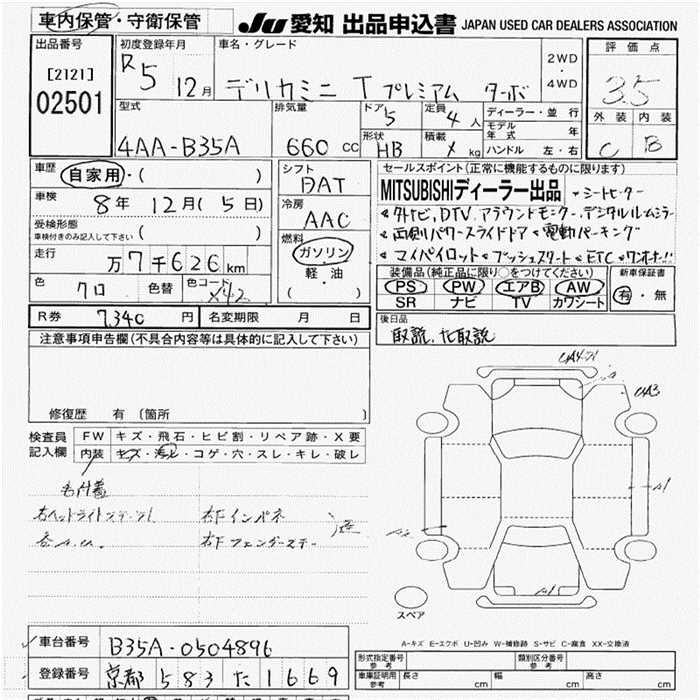 車内保管・守衛保管
JU 愛知 出品申込書 JAPAN USED CAR DEALERS ASSOCIATION
出品番号
[2121]
02501
初度登録年月
R5 12月
車名・グレード
デリカミニ T プレミアム ターボ
2WD
・
4WD
評価点
3.5
外装 内装
C B
型式
4AA-B35A
排気量
660 cc
ドア 5
形状 HB
定員 4 人
積載 kg
ディーラー・並行
モデル年式 年
ハンドル 左・右
車歴
自家用・( )
車検 8年 12月(5日)
受検形態
車検付きのみ記入して下さい ( )
走行 万7千626km
色 クロ 色替 色コード X42
シフト
DAT
冷房
AAC
燃料
ガソリン
・
軽・油
( )
セールスポイント(正常に機能するものに限ります)
MITSUBISHIディーラー出品 シートヒーター
ナビ,DTV アラウンドモニター デジタルルームミラー
両側パワースライドドア 電動パーキング
マイパイロット プッシュスタート ETC ワンオーナー!!
装備品(純正品に限り○をつけてください)
PS PW エアB AW
SR ナビ TV カワシート
新車保証書
有・無
R券 7,340 円 名変期限 月 日
後日品
取説.ナビ取説
注意事項申告欄(不具合内容等は具体的に記入して下さい)
修復歴 有 〔箇所
検査員
記入欄
FW キズ・飛石・ヒビ割・リペア跡・X要
内装 キズ・汚レ・コゲ・穴・スレ・キレ・破レ
右ヘッドライト
右Fインパネ
右Fフェンダー
A3
A1
スペア
A-キズ E-エクボ U-凹み W-補修跡 S-サビ C-腐食 XX-交換済
車台番号 B35A-0504896
登録番号 京都 583 た 1669
形式指定番号
参考
類別区分番号
参考
車庫証明用
参考
長さ cm 幅 cm 高さ cm